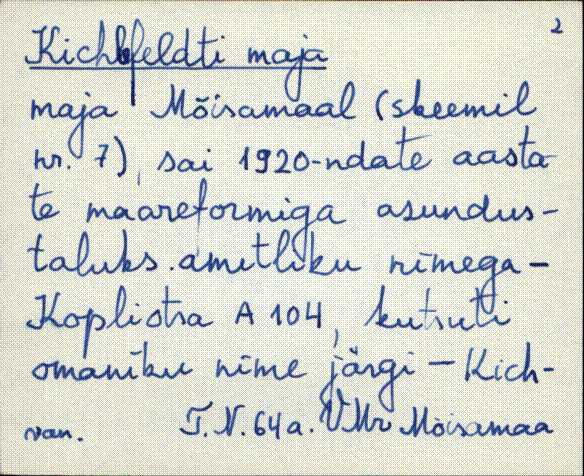 2
Kichlfeldti maja
maja Mõisamaal (skeemil
nr. 7), sai 1920-ndate aasta-
te maareformiga asundus-
taluks. ametliku nimega -
Kopliotsa A 104, kutsuti
omaniku nime järgi - Kich-
van. T.N. 64 a. VMr Mõisamaa